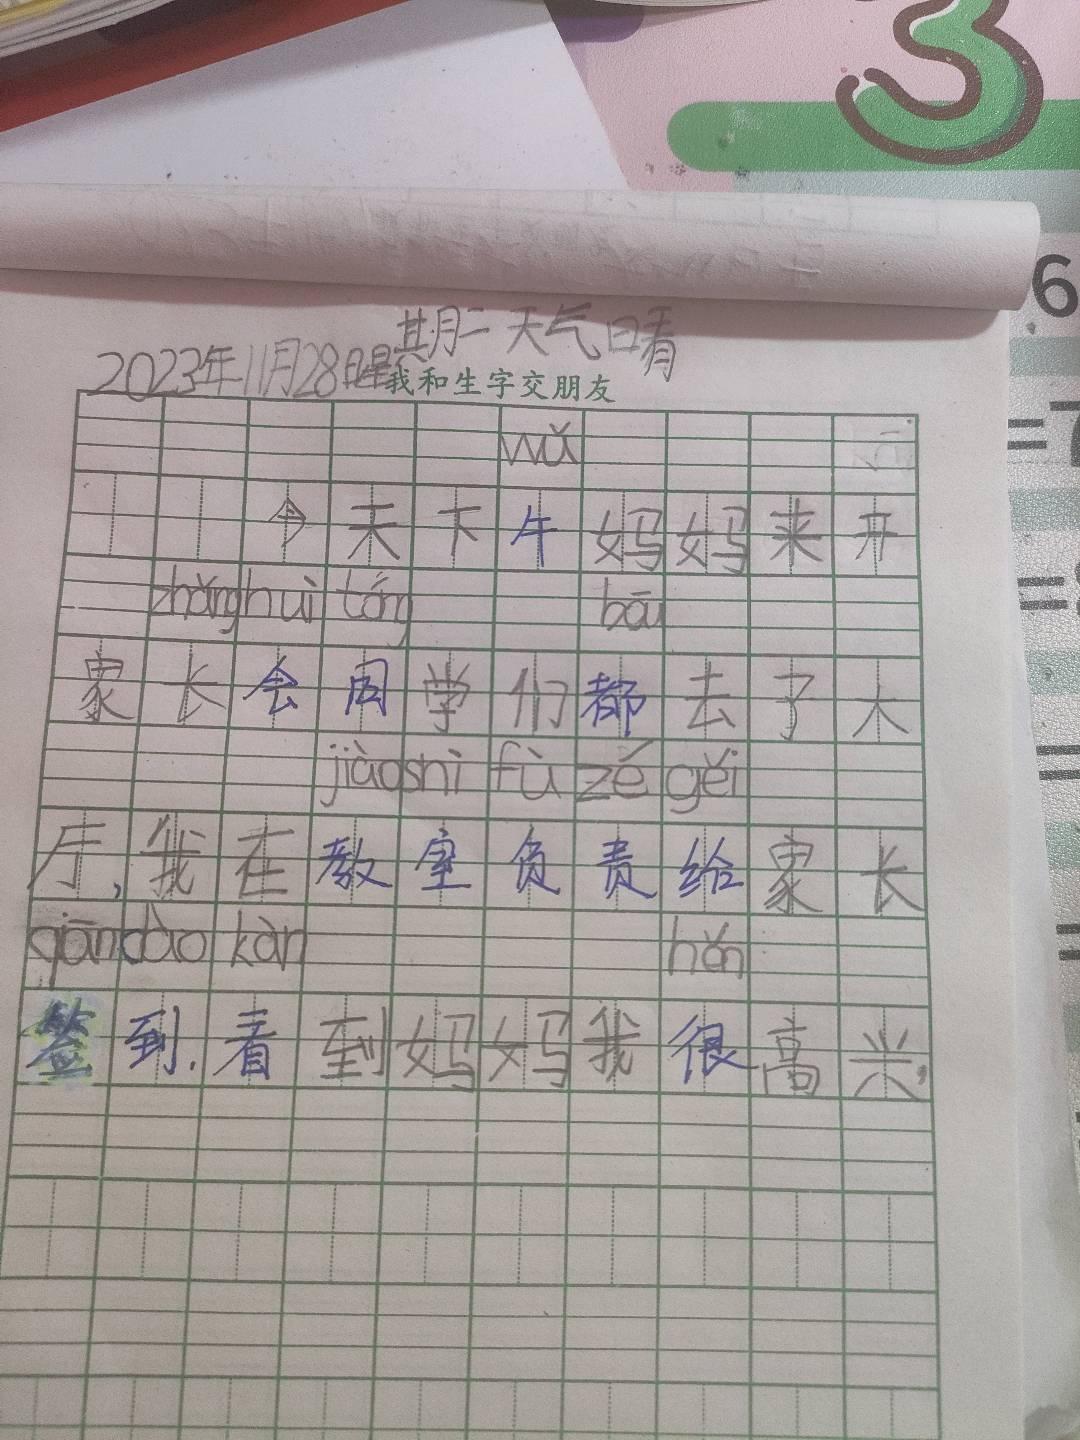 3
6
=7
=
2023年11月28日星期二 天气 晴
我和生字交朋友
wǔ
今天下午妈妈来开
zhǎng huì tóng bōu
家长会同学们都去了大
jiào shì fù zé gěi
厅,我在教室负责给家长
qiān dào kàn hěn
签到.看到妈妈我很高兴,